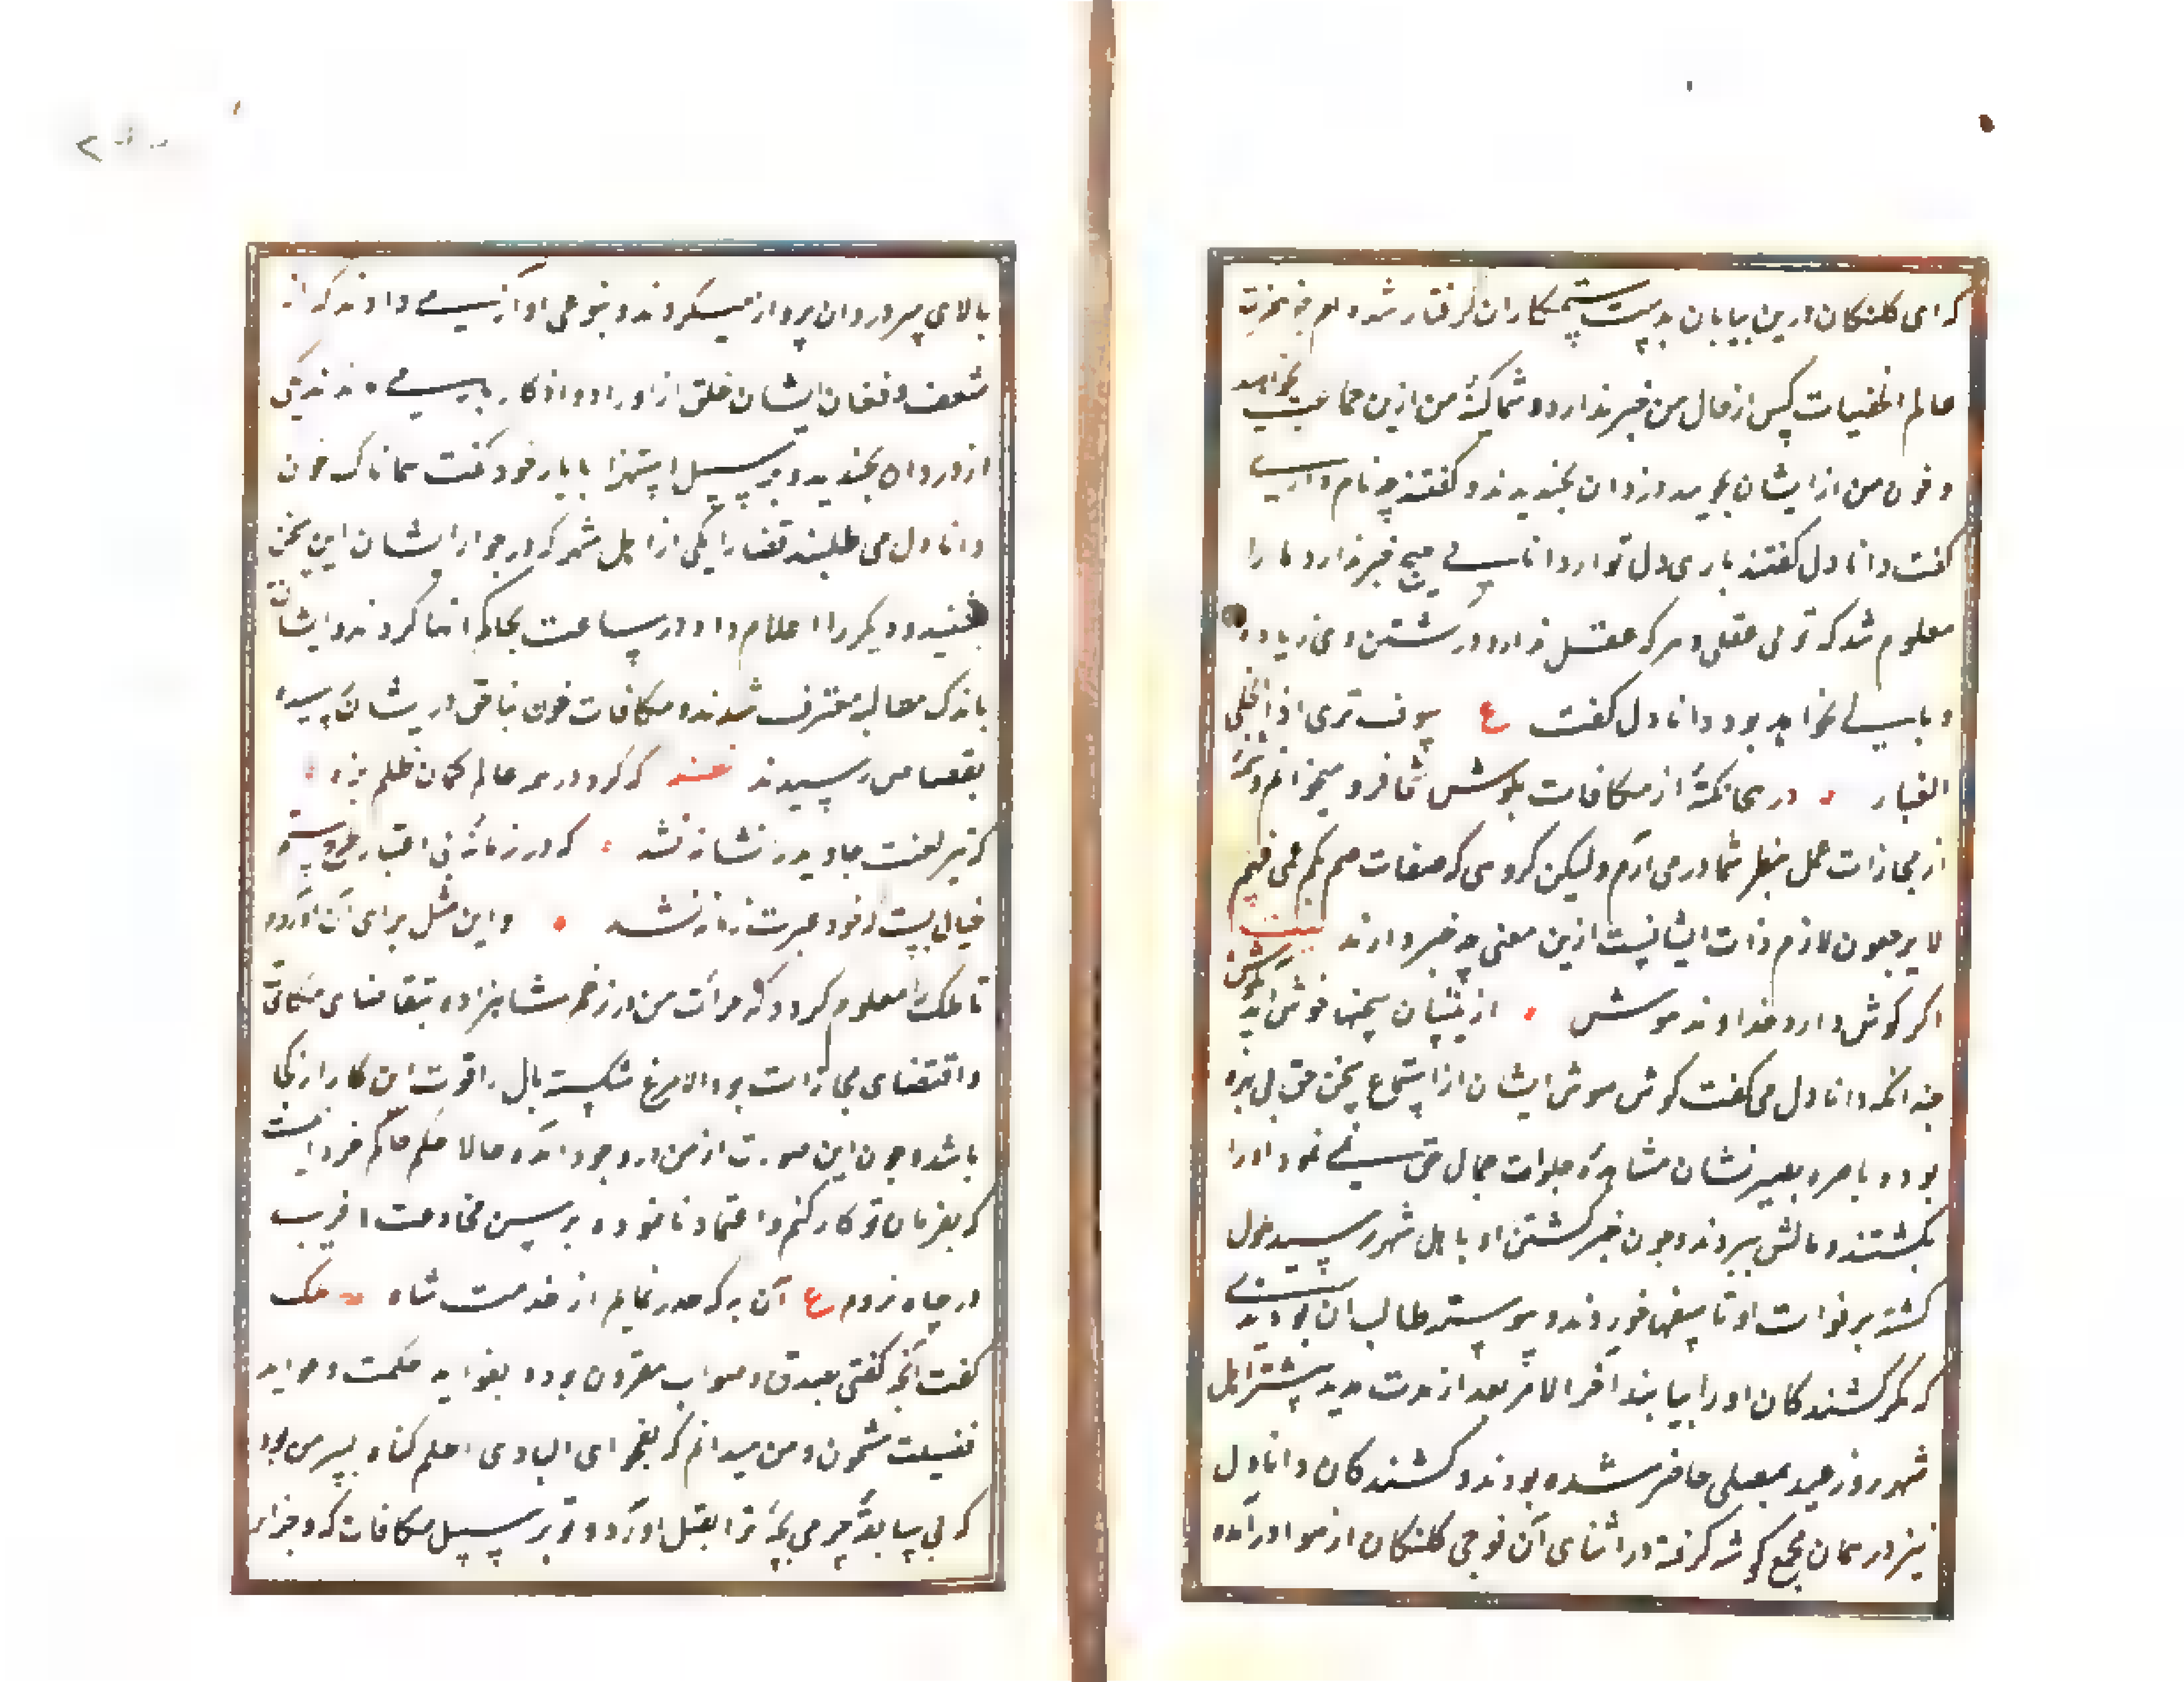 که ای کلنکان درین بیابان بدست ستمکاران کرفتار شده ام و جز حضرت
عالم الخفیات کس از حال من خبر ندارد و شما کینهٔ من ازین جماعت بخواهید
و خون من از ایشان بجویید دزدان بخندیدند و کفتند چه نام داری
کفت دانادل کفتند باری دل تو از دانایی هیچ خبر ندارد ما را
معلوم شد که تو بی عقلی و هر که عقل ندارد در کشتن وی زیاده
وبالی نخواهد بود دانادل کفت ع سوف تری اذا انجلی
الغبار در نکتهٔ از مکافات بکوش شما فرو میخوانم و
از مجازات عمل بنظر شما در می آرم ولیکن کروهی که صفات صم بکم عمی فهم
لا یرجعون لازم ذات ایشانست ازین معنی چه خبر دارند بیت
اکر کوش دارد خداوند هوش ازینسان سخنها خوش آید بکوش
چندانکه دانادل می کفت کوش هوش ایشان از استماع سخن حق بی بهره
بود و باصره بصیرتشان مشاهدهٔ جلوات جمال حق نمی نمود او را
بکشتند و مالش ببردند و چون خبر کشتن او باهل شهر رسید ملول
کشته بر فوات او تاسفها خوردند و پیوسته طالب آن بودندی
که مکر کشندکان او را بیابند آخر الامر بعد از مدت مدید بیشتر اهل
شهر روز عید بمصلی حاضر شده بودند و کشندکان دانادل
نیز در همان مجمع کوشه کرفته در اثنای آن فوجی کلنکان از هوا درآمده
بالای سر دزدان پرواز میکردند و بنوعی آواز می دادند که از
شغف و فغان ایشان خلق از اوراد و اذکار باز می ماندند یکی
از دزدان بخندید و بر سبیل استهزا با یار خود کفت همانا که خون
دانادل می طلبند قضا را یکی از اهل شهر که در جوار ایشان این سخن
بشنید و دیکر را اعلام داد و در ساعت بحاکم انها کردند و ایشان
باندک مطالبه معترف شدند و مکافات خون ناحق در ایشان رسیده
بقصاص رسیدند که کرد در همه عالم کمان ظلم بزه
که تیر لعنت جاوید را نشانه نشد که در زمانهٔ بی اعتبار طرح ستم
خیال بست که خود عبرت زمانه نشد و این مثل برای آن آوردم
تا ملک را معلوم کردد که جرأت من در زخم شاهزاده بتقاضای مکافات
و اقتضای مجازات بود والا مرغ شکسته بال را قوت این کار از کجا
باشد و چون این صورت از من در وجود آمده حالا حکم حاکم خرد آنست
که بفرمان تو کار نکنم و اعتماد نانموده برسن مخادعت و فریب
در چاه نروم ع آن به که حذر نمایم از خدمت شاه ملک
کفت آنچه کفتی بصدق و صواب مقرون بود و بفواید حکمت و عواید
فضیلت مشحون و من میدانم که بفحوای البادی اظلم کناه پسر من بود
که بی سابقهٔ جرمی بچهٔ ترا بقتل آورد و تو بر سبیل مکافات که و جزاء